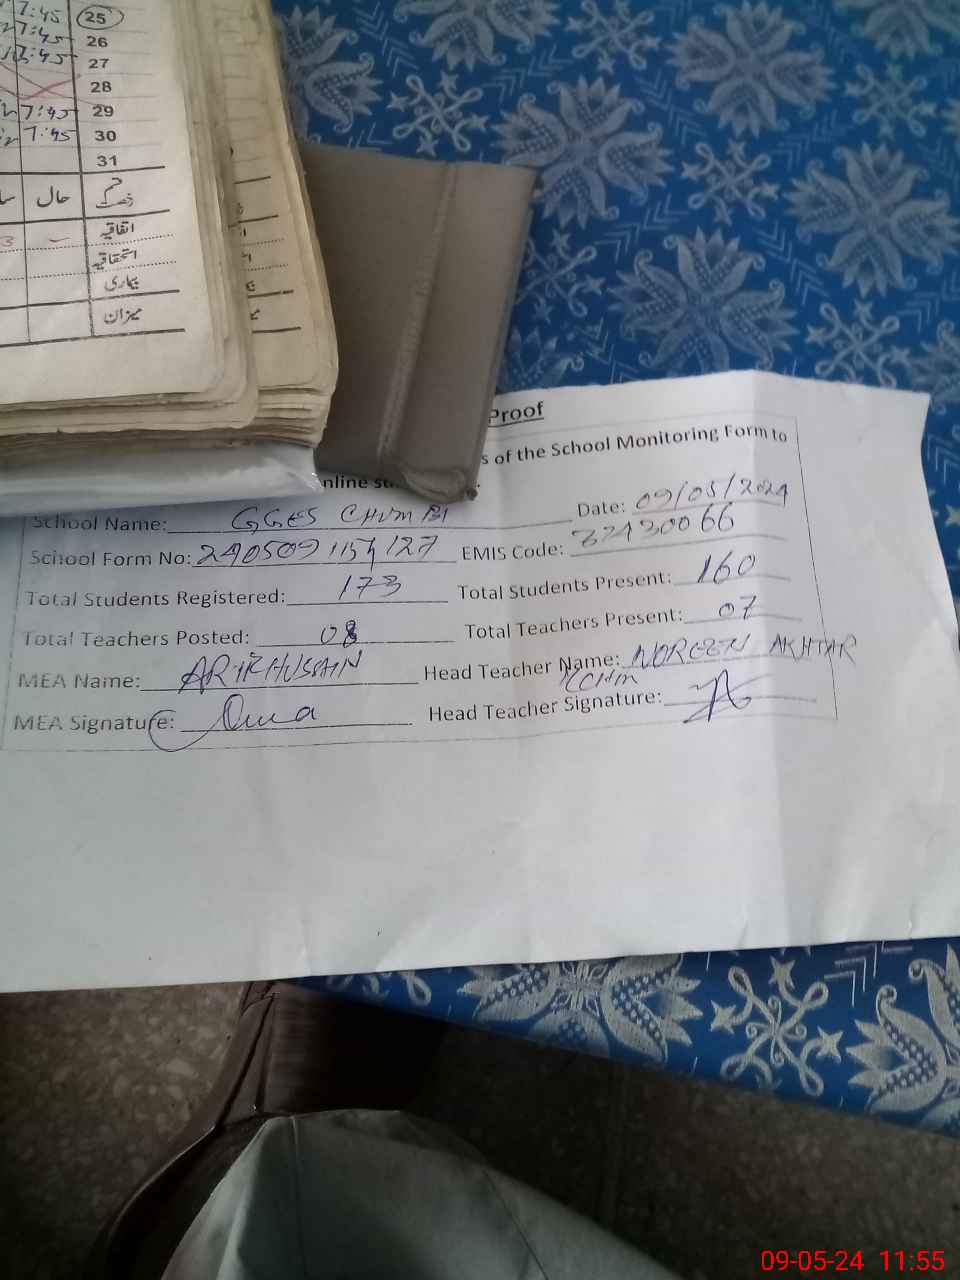 7:45 25
7:45 26
7:45 27
28
7:45 29
7:45 30
31
حال
3 - اتفاقیہ
استحقاقیہ
بیماری
میزان
Proof
s of the School Monitoring Form to
nline st
School Name: GGES CHUMBI Date: 09/05/2024
School Form No: 2405091154127 EMIS Code: 37430066
Total Students Registered: 173 Total Students Present: 160
Total Teachers Posted: 08 Total Teachers Present: 07
MEA Name: Head Teacher Name: NOREEN AKHTAR
MEA Signature: Head Teacher Signature:
09-05-24 11:55